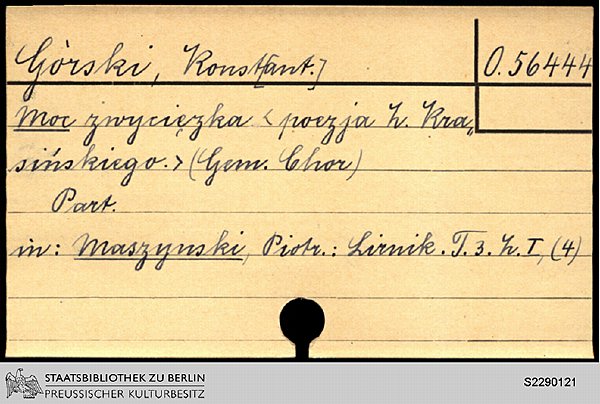 Górski, Konst[ant.]
O. 56444
Moc zwycięzka < poezja Z. Kra„
sińskiego.> (Gem. Chor)
Part.
in: Maszynski, Piotr.: Lirnik. T. 3. Z. I, (4)
STAATSBIBLIOTHEK ZU BERLIN
PREUSSISCHER KULTURBESITZ
S2290121